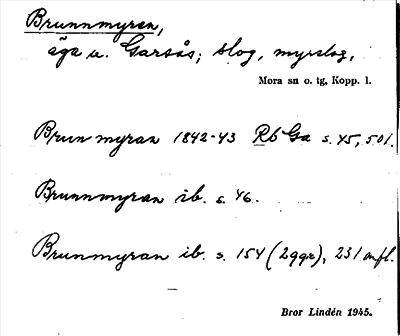 Brunnmyran,
äga u. Garsås; slog, myrslog,
Mora sn o. tg, Kopp. l.
Brunmyran 1842-43 Rb Ga s. 45, 501.
Brunnmyran ib. s. 46.
Brunmyran ib. s. 154 (2ggr), 231 mfl.
Bror Lindén 1945.